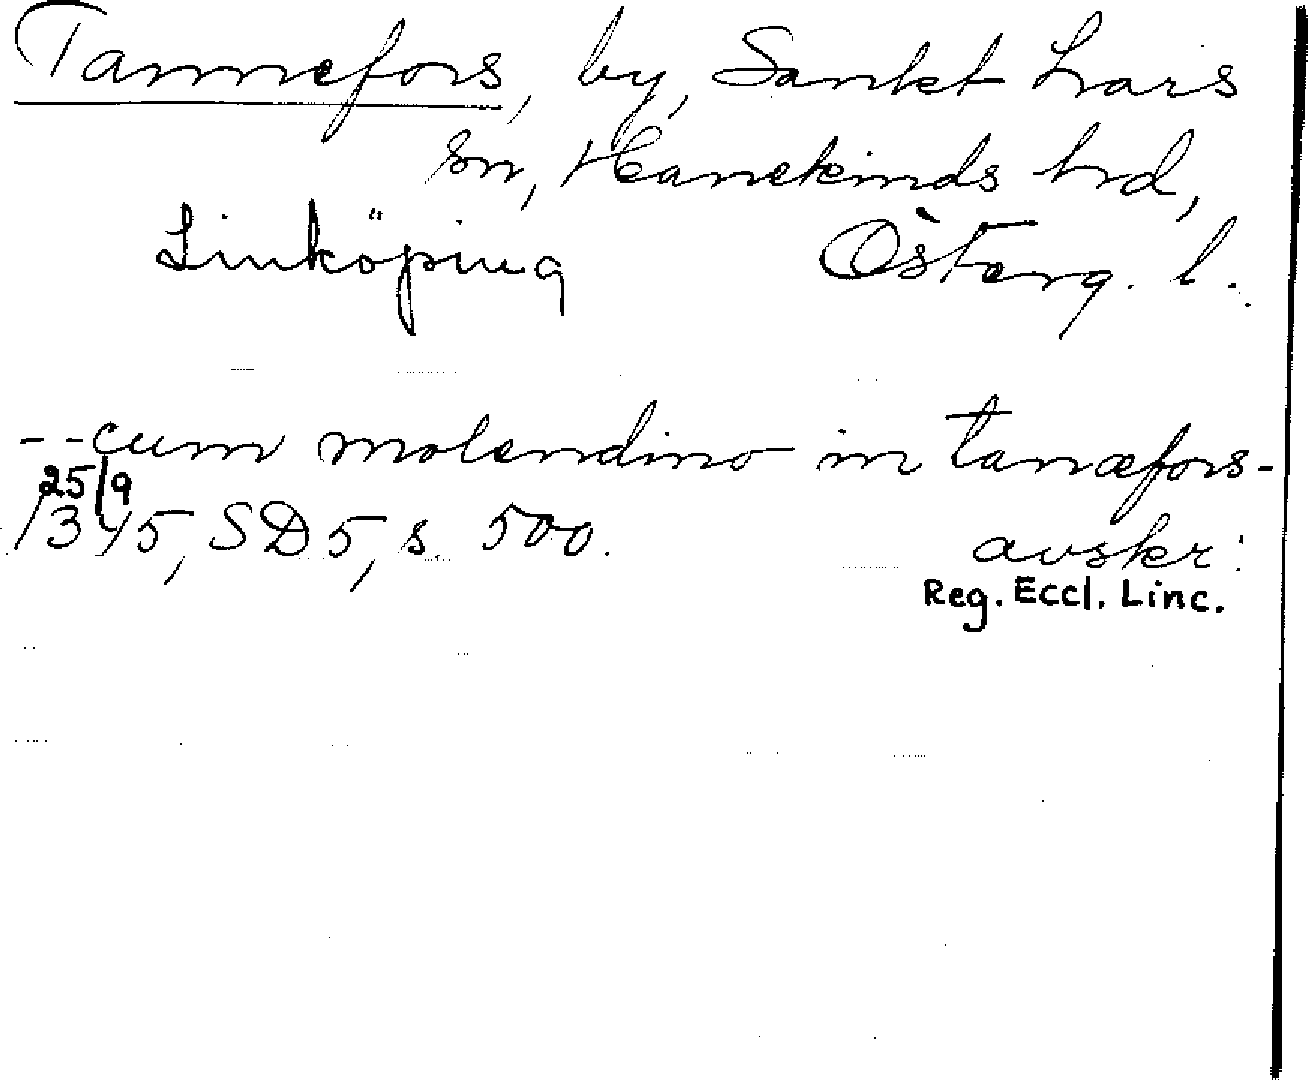 Tannefors, by, Sankt Lars
sn, Hanekinds hrd,
Linköping Österg. l.
--cum molendino in tanæfors-
25/9
1345, SD 5, s 500. avskr:
Reg. Eccl. Linc.